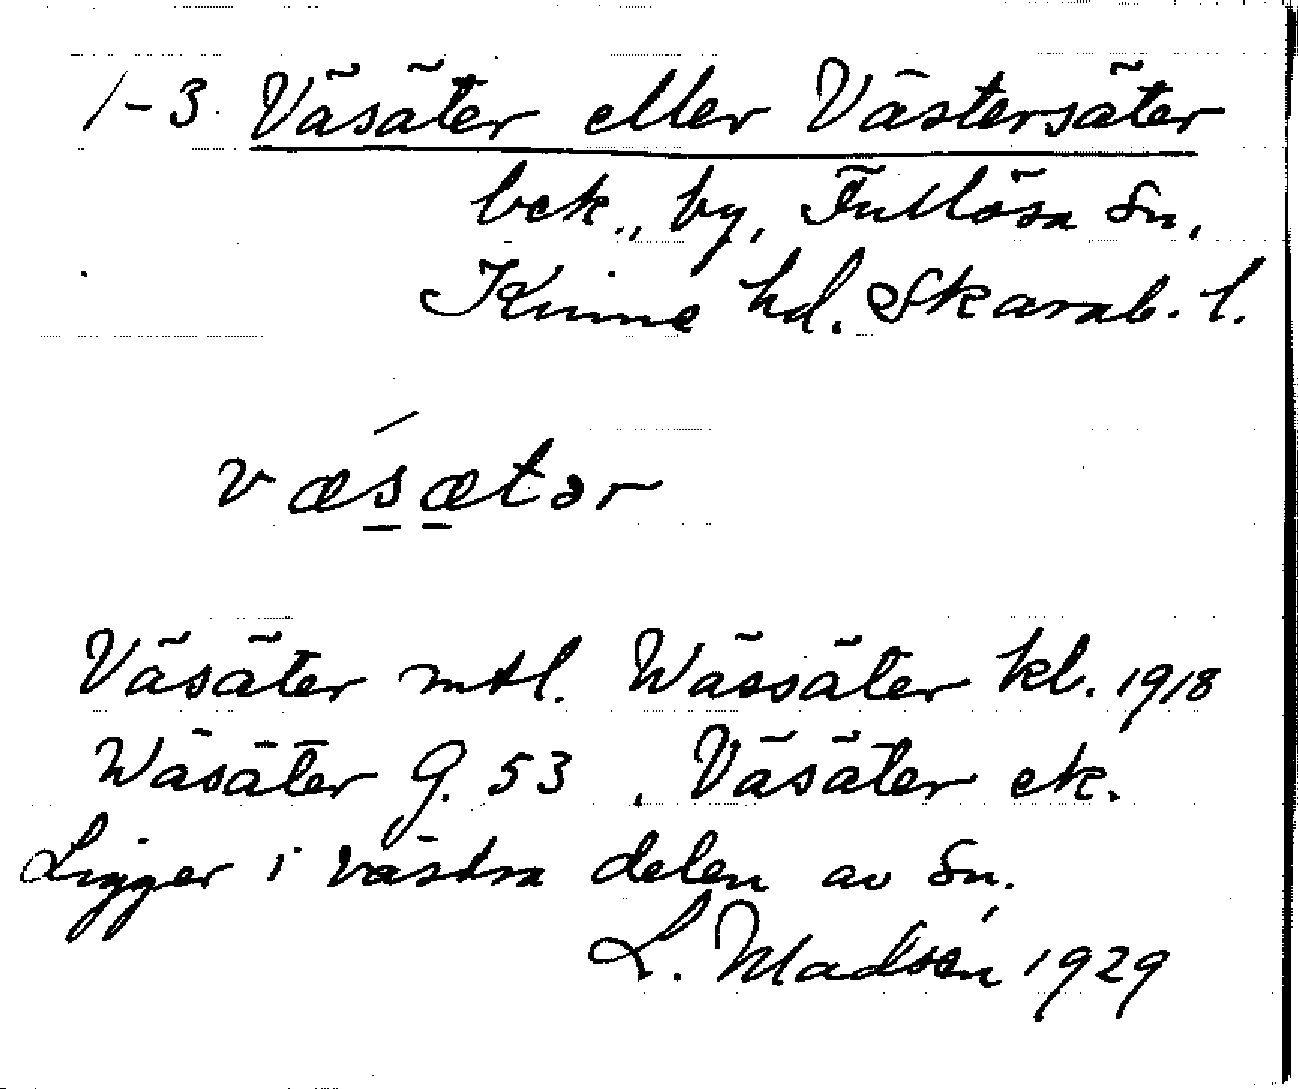 1-3. Väsäter eller Västersäter
bek., by, Fullösa Sn,
Kinne hd. Skarab. l.
væsætər
Väsäter mtl. Wässäter kl. 1918
Wäsäter G. 53, Väsäter ek.
Ligger i västra delen av Sn.
L. Madsén 1929